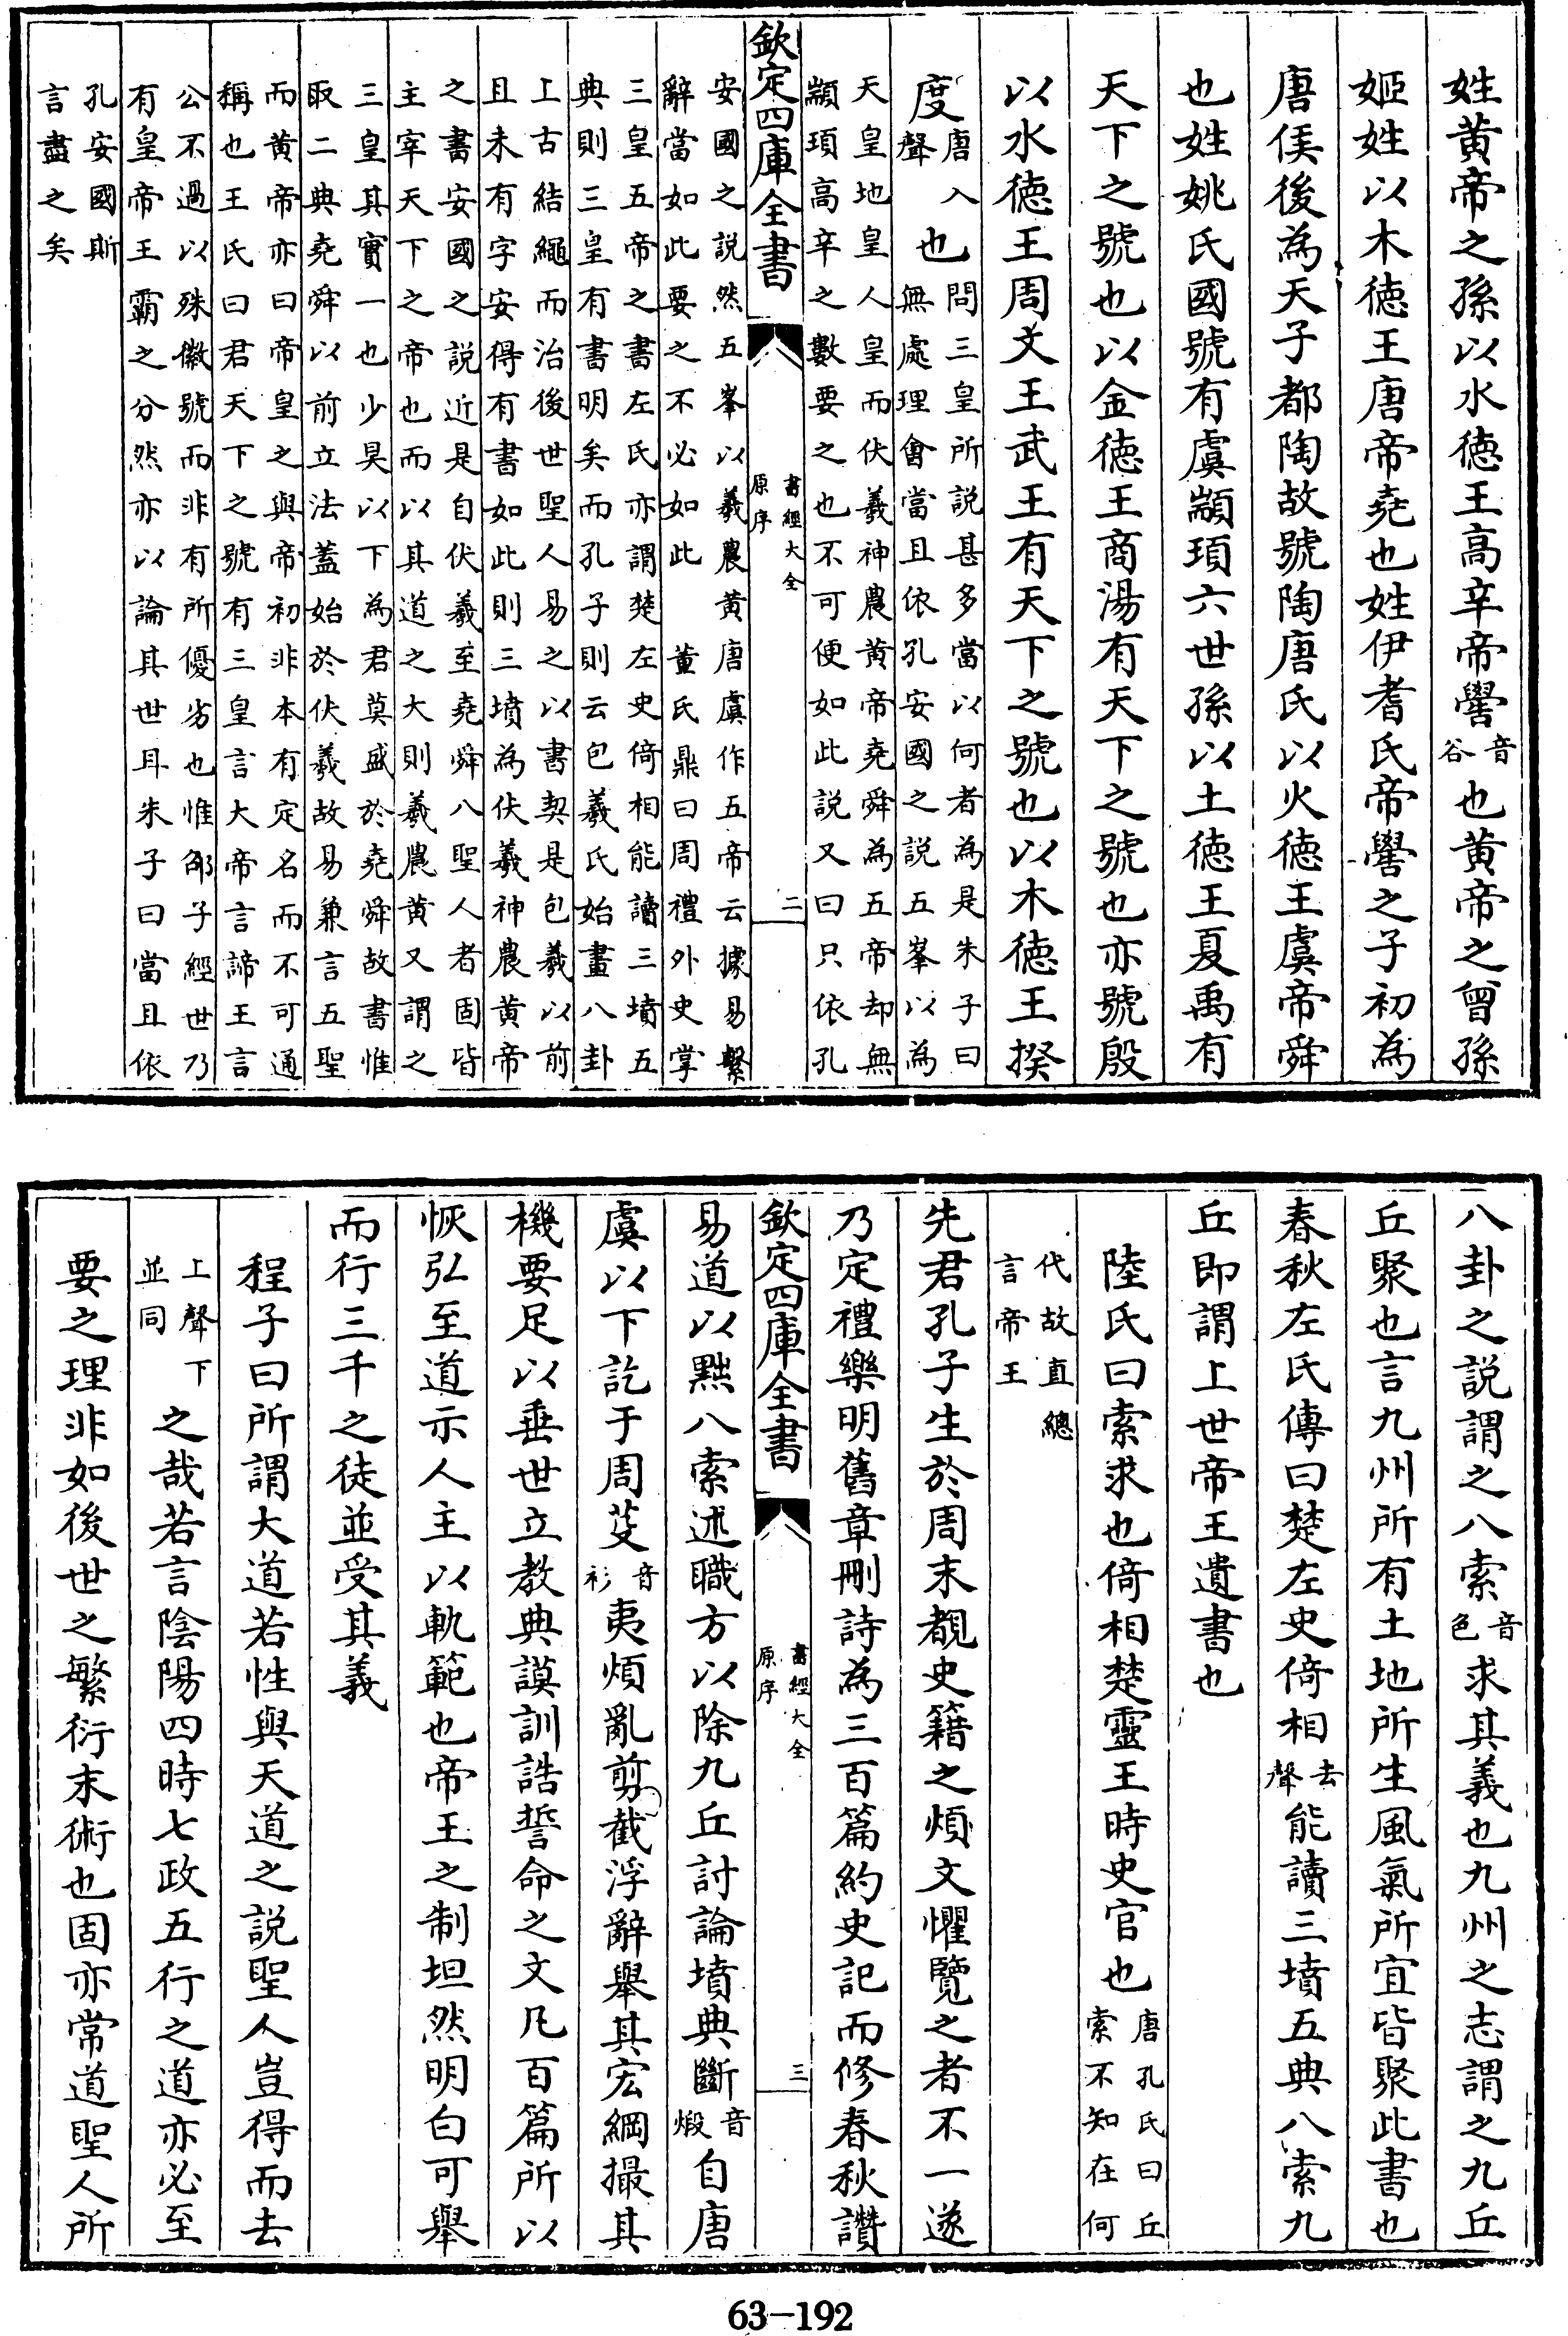 姓黄帝之孫以水徳王高辛帝嚳音谷也黄帝之曾孫
姬姓以木徳王唐帝堯也姓伊耆氏帝嚳之子初為
唐侯後為天子都陶故號陶唐氏以火徳王虞帝舜
也姓姚氏國號有虞顓頊六世孫以土徳王夏禹有
天下之號也以金徳王商湯有天下之號也亦號殷
以水徳王周文王武王有天下之號也以木徳王揆
度唐入聲也問三皇所説甚多當以何者為是朱子曰
無處理會當且依孔安國之説五峯以為
天皇地皇人皇而伏羲神農黄帝堯舜為五帝却無
顓頊高辛之數要之也不可便如此説又曰只依孔
欽定四庫全書
書經大全
原序
二
安國之説然五峯以羲農黄唐虞作五帝云據易繫
辭當如此要之不必如此 董氏鼎曰周禮外史掌
三皇五帝之書左氏亦謂楚左史倚相能讀三墳五
典則三皇有書明矣而孔子則云包羲氏始畫八卦
上古結繩而治後世聖人易之以書契是包羲以前
且未有字安得有書如此則三墳為伏羲神農黄帝
之書安國之説近是自伏羲至堯舜八聖人者固皆
主宰天下之帝也而以其道之大則羲農黄又謂之
三皇其實一也少昊以下為君莫盛於堯舜故書惟
取二典堯舜以前立法蓋始於伏羲故易兼言五聖
而黄帝亦曰帝皇之與帝初非本有定名而不可通
稱也王氏曰君天下之號有三皇言大帝言諦王言
公不過以殊徽號而非有所優劣也惟邵子經世乃
有皇帝王霸之分然亦以論其世耳朱子曰當且依
孔安國斯
言盡之矣
八卦之説謂之八索音色求其義也九州之志謂之九丘
丘聚也言九州所有土地所生風氣所宜皆聚此書也
春秋左氏傳曰楚左史倚相去聲能讀三墳五典八索九
丘即謂上世帝王遺書也
陸氏曰索求也倚相楚靈王時史官也唐孔氏曰丘
索不知在何
代故直總
言帝王
先君孔子生於周末覩史籍之煩文懼覽之者不一遂
乃定禮樂明舊章刪詩為三百篇約史記而修春秋讚
欽定四庫全書
書經大全
原序
三
易道以黜八索述職方以除九丘討論墳典斷音煅自唐
虞以下訖于周芟音衫夷煩亂剪截浮辭舉其宏綱撮其
機要足以垂世立教典謨訓誥誓命之文凡百篇所以
恢弘至道示人主以軌範也帝王之制坦然明白可舉
而行三千之徒並受其義
程子曰所謂大道若性與天道之説聖人豈得而去
上聲下並同之哉若言陰陽四時七政五行之道亦必至
要之理非如後世之繁衍末術也固亦常道聖人所
63-192